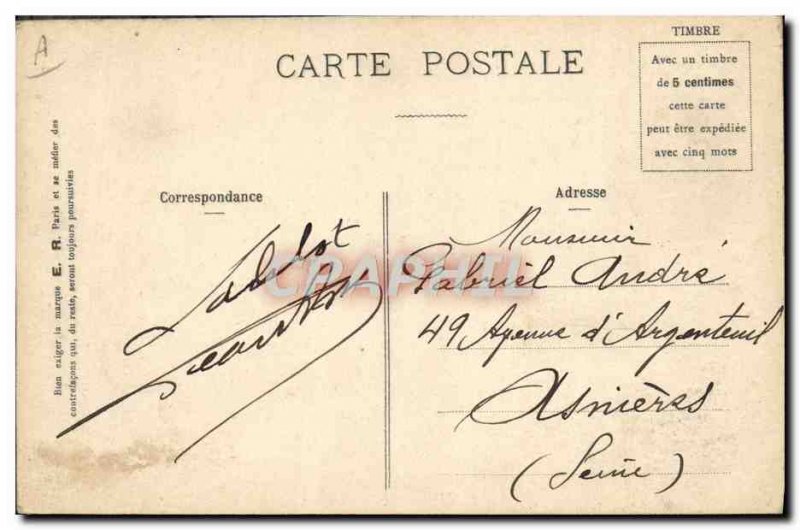 A
TIMBRE
CARTE POSTALE
Avec un timbre
de 5 centimes
cette carte
peut être expédiée
avec cinq mots
Bien exiger la marque E. R. Paris et se méfier des
contrefaçons qui, du reste, seront toujours poursuivies
Correspondance
Adresse
Monsieur
Gabriel André
49 Avenue d'Argenteuil
Asnières
(Seine)
CPAPHIL